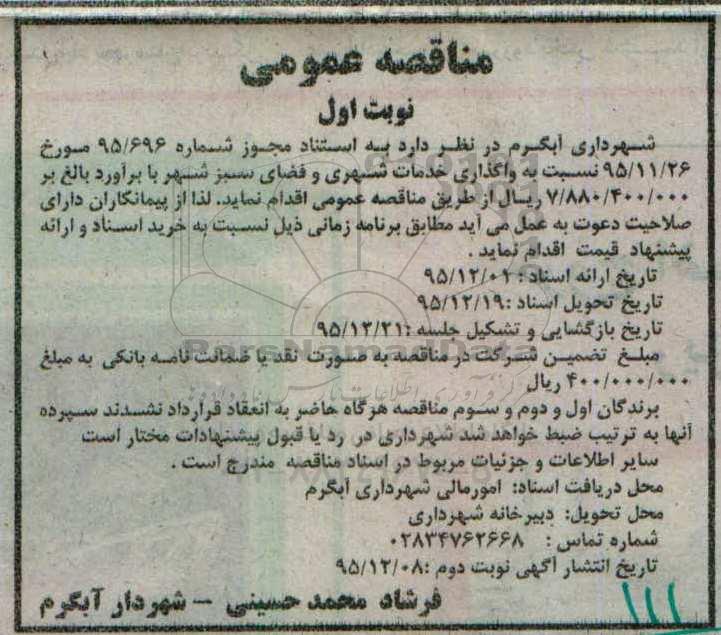 مناقصه عمومی
نوبت اول
شهرداری آبگرم در نظر دارد به استناد مجوز شماره ۹۵/۶۹۶ مورخ
۹۵/۱۱/۲۶ نسبت به واگذاری خدمات شهری و فضای سبز شهر با برآورد بالغ بر
۷/۸۸۰/۴۰۰/۰۰۰ ریال از طریق مناقصه عمومی اقدام نماید. لذا از پیمانکاران دارای
صلاحیت دعوت به عمل می آید مطابق برنامه زمانی ذیل نسبت به خرید اسناد و ارائه
پیشنهاد قیمت اقدام نماید .
تاریخ ارائه اسناد : ۹۵/۱۲/۰۱
تاریخ تحویل اسناد :۹۵/۱۲/۱۹
تاریخ بازگشایی و تشکیل جلسه :۹۵/۱۲/۲۱
مبلغ تضمین شرکت در مناقصه به صورت نقد یا ضمانت نامه بانکی به مبلغ
۴۰۰/۰۰۰/۰۰۰ ریال
برندگان اول و دوم و سوم مناقصه هرگاه حاضر به انعقاد قرارداد نشدند سپرده
آنها به ترتیب ضبط خواهد شد شهرداری در رد یا قبول پیشنهادات مختار است
سایر اطلاعات و جزئیات مربوط در اسناد مناقصه مندرج است .
محل دریافت اسناد: امورمالی شهرداری آبگرم
محل تحویل: دبیرخانه شهرداری
شماره تماس : ۰۲۸۳۴۷۶۲۶۶۸
تاریخ انتشار آگهی نوبت دوم :۹۵/۱۲/۰۸
فرشاد محمد حسینی – شهردار آبگرم
ParsNamadData
111